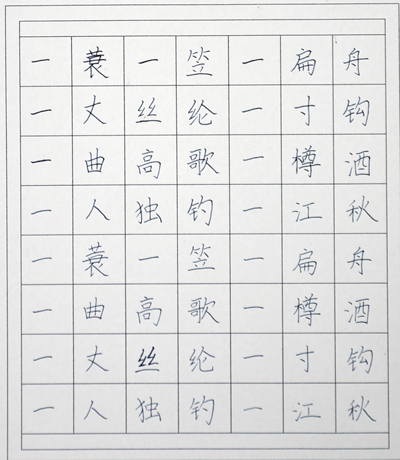 一蓑一笠一扁舟
一丈丝纶一寸钩
一曲高歌一樽酒
一人独钓一江秋
一蓑一笠一扁舟
一曲高歌一樽酒
一丈丝纶一寸钩
一人独钓一江秋